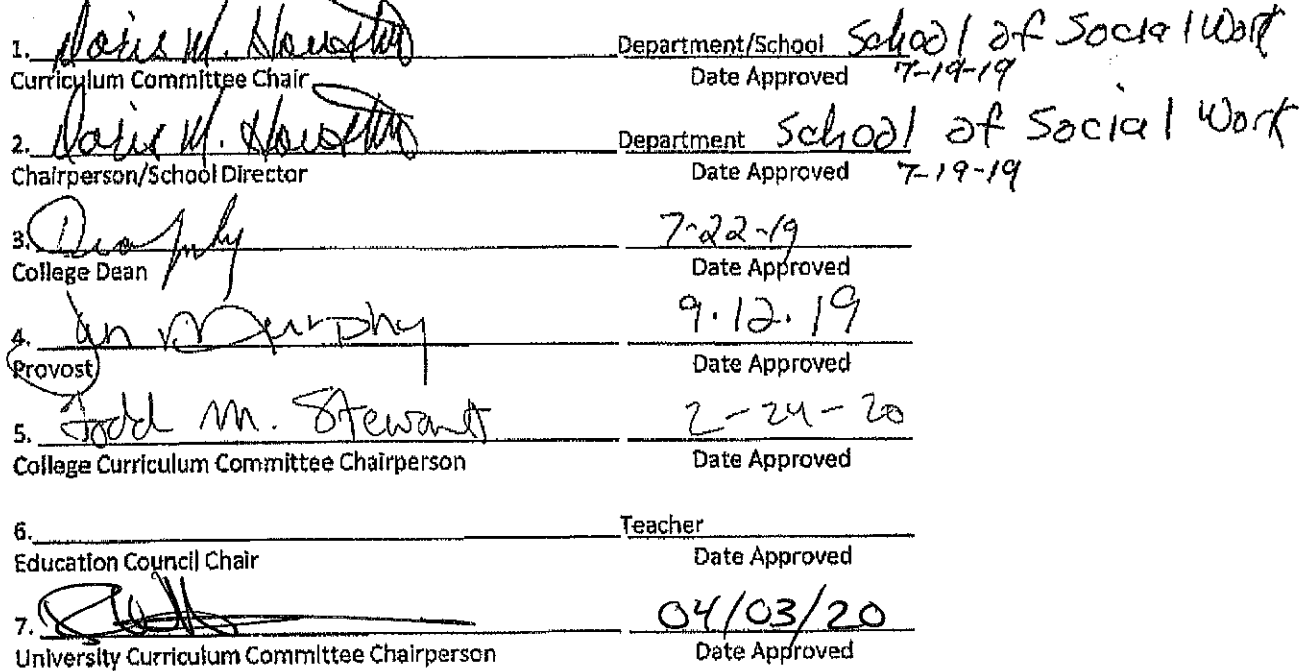 1. Doris M. Houston Department/School School of Social Work
Curriculum Committee Chair Date Approved 7-19-19
2. Doris M. Houston Department School of Social Work
Chairperson/School Director Date Approved 7-19-19
3. 7-22-19
College Dean Date Approved
4. Murphy 9.12.19
Provost Date Approved
5. Todd M. Stewart 2-24-20
College Curriculum Committee Chairperson Date Approved
6. Teacher
Education Council Chair Date Approved
7. 04/03/20
University Curriculum Committee Chairperson Date Approved